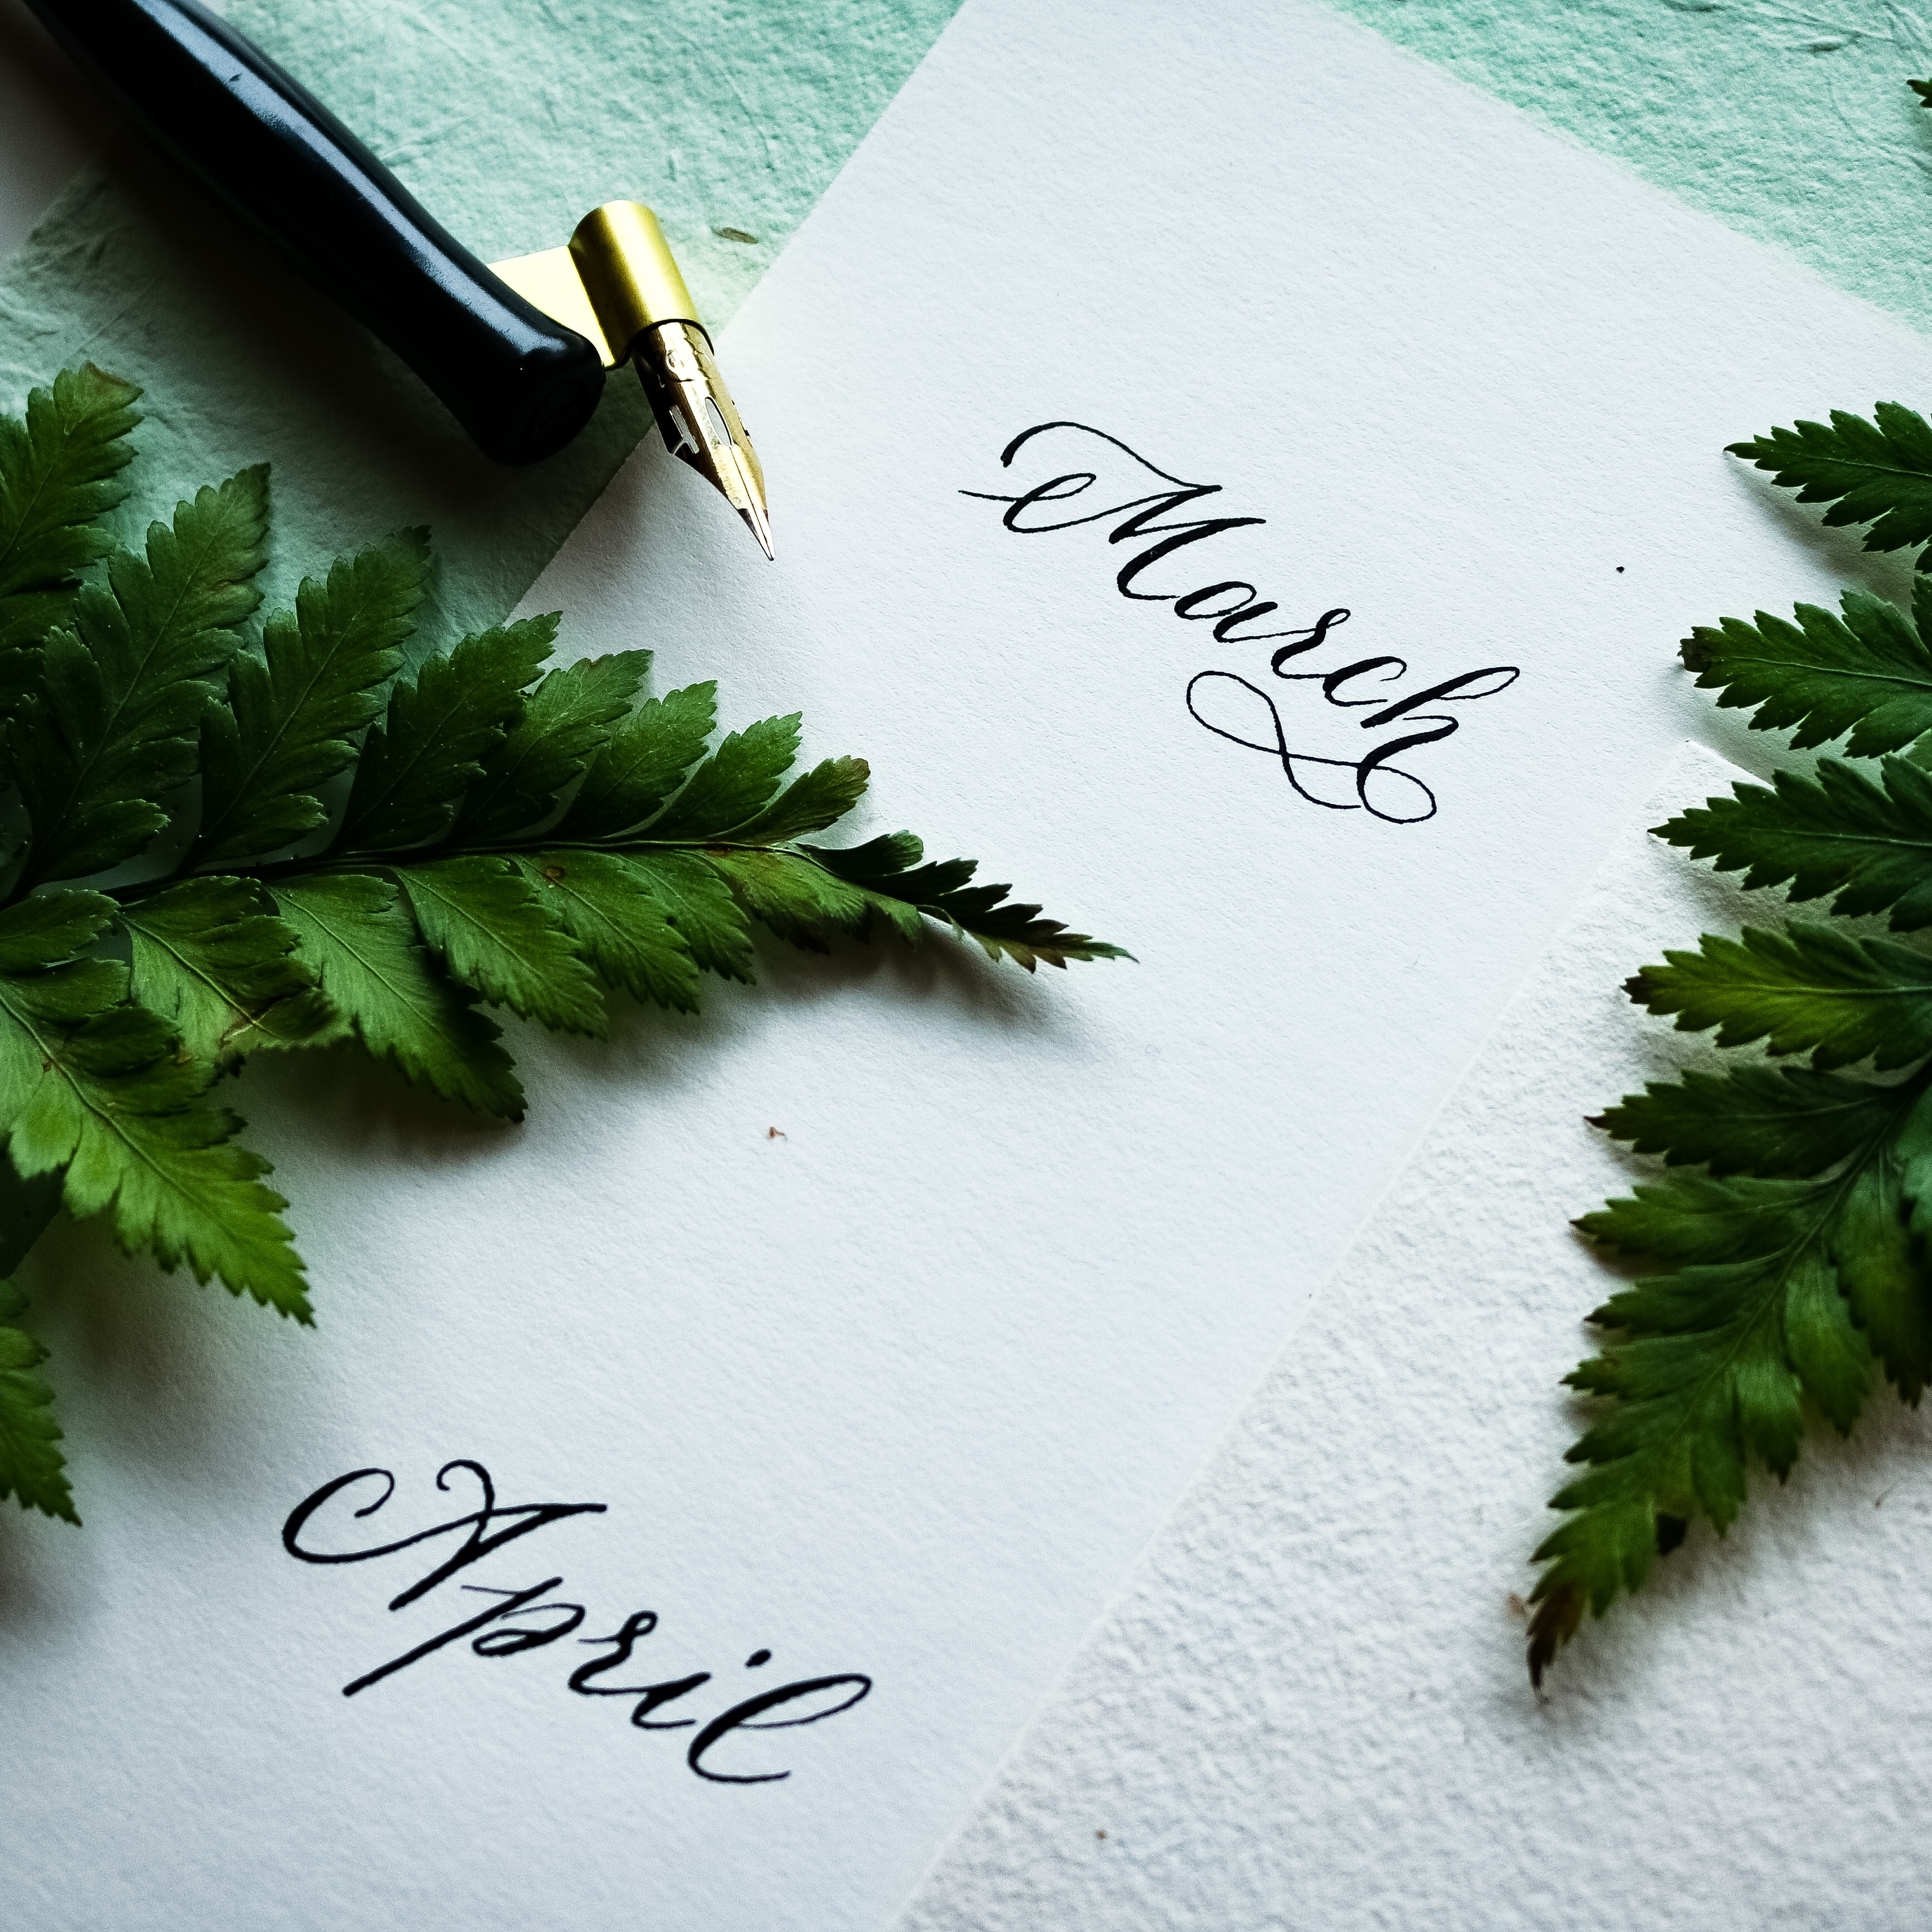 March
April